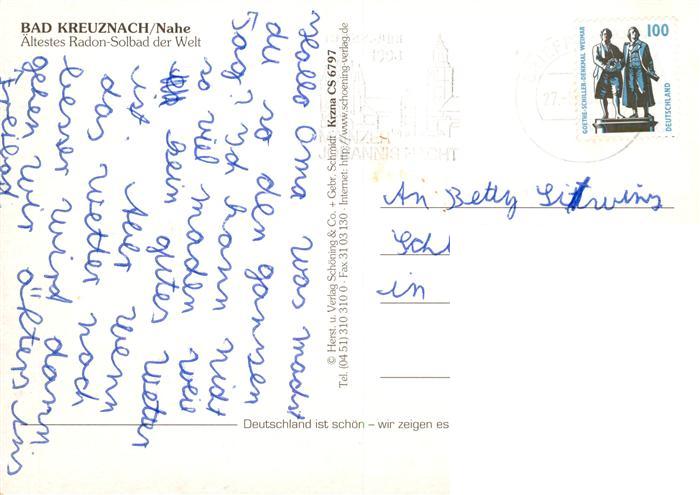 BAD KREUZNACH/Nahe
Ältestes Radon-Solbad der Welt
Hallo Oma was machst
du so den ganzen
Tag? Ich kann nicht
so viel machen weil
kein gutes Wetter
ist. Aber wenn
das Wetter noch
besser wird dann
gehen wir öfters ins
Freibad
© Herst. u. Verlag Schöning & Co. + Gebr. Schmidt · Krzna CS 6797
Tel. (04 51) 310 310 0 · Fax 31 03 130 · Internet: http://www.schoening-verlag.de
Deutschland ist schön – wir zeigen es
GOETHE-SCHILLER-DENKMAL WEIMAR
100
DEUTSCHLAND
27.
An Betty
Sch
in